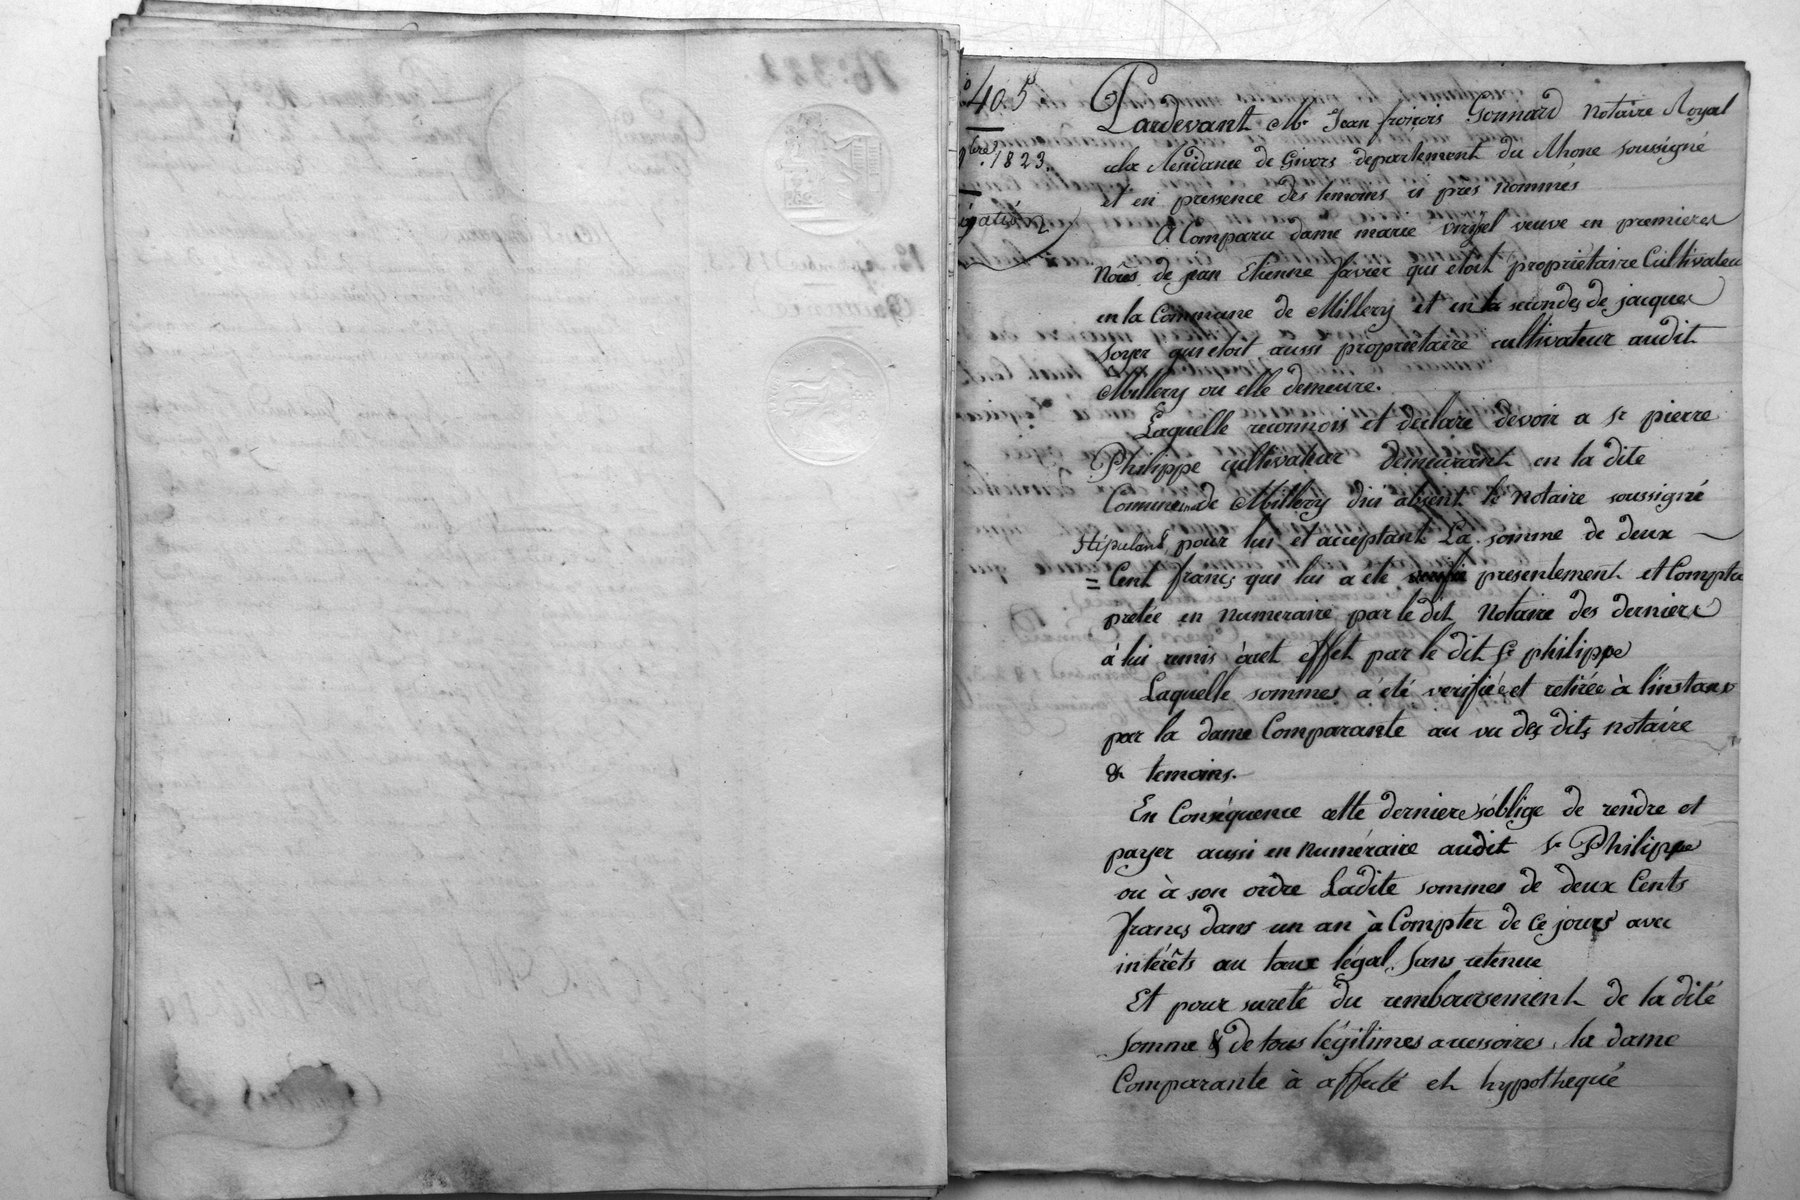 405
1823.
Pardevant Me. Jean françois Gonnard Notaire Royal
ala Residance de Givors departement du Rhone soussigné
et en pressence des temoins ci pres nommés
A Comparu dame marie veuve en premieres
Nôces de jean Etienne favier qui etoit propriétaire Cultivateu
en la Commune de Millery et en la secondes de jacques
soyer qui etoit aussi proprietaire cultivateur audit
Millery ou elle demeure.
Laquelle reconnois et declare devoir a Sr pierre
Philippe cultivateur demeurant en la dite
Commune de Millery dici absent le notaire soussigné
stipulant pour lui et acceptant La somme de deux
= Cent francs qui lui a eté presentement et Compta
pretée en numeraire par le dit Notaire des deniers
à lui remis àcet effet par le dit Sr philippe
Laquelle sommes a été verifiée et retirée à l'instant
par la dame Comparante au vu des dits notaire
& temoins.
En Conséquence cette derniere s'oblige de rendre et
payer aussi en numéraire audit Sr Philippe
ou à son ordre Ladite sommes de deux Cents
francs dans un an à Compter de ce jours avec
intérêts au taux légal sans retenue
Et pour sureté du remboursement de la dité
somme & de tous légitimes accessoires, la dame
Comparante à affecté et hypothequé